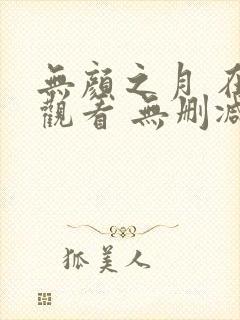 無顏之月 在
觀看 無刪減
狐美人